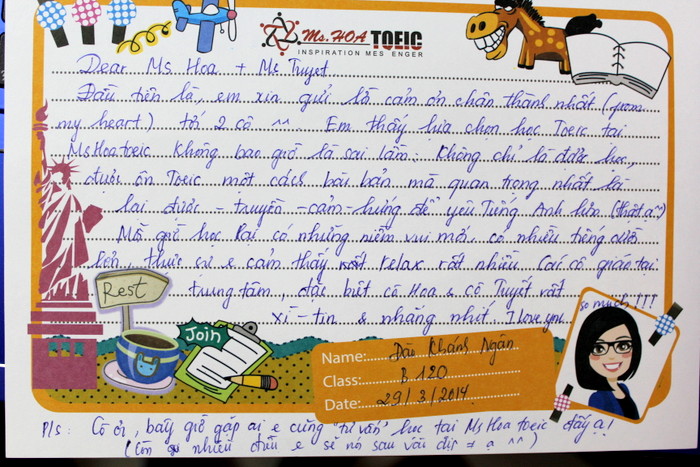 Ms. HOA TOEIC
INSPIRATION MESSENGER
Dear Ms Hoa + Ms Tuyết
Đầu tiên là, em xin gửi lời cảm ơn chân thành nhất (from
my heart) tới 2 cô ^^ Em thấy lựa chọn học Toeic tại
MsHoatoeic không bao giờ là sai lầm. Không chỉ là được học,
được ôn Toeic một cách bài bản mà quan trọng nhất là
lại được - truyền - cảm - hứng để yêu Tiếng Anh hơn (thật ạ^^)
Mỗi giờ học lại có những niềm vui mới, có nhiều tiếng cười
hơn, thực sự e cảm thấy relax rất nhiều. Các cô giáo tại
trung tâm, đặc biệt cô Hoa & cô Tuyết rất
xì-tin & nhắng nhít. I love you so much!!!
Rest
Join
Name: Đào Khánh Ngân
Class: B 120
Date: 29/3/2014
P/s: Cô ơi, bây giờ gặp ai e cũng "tư vấn" học tại MsHoatoeic đấy ạ!
(Còn nhiều điều e sẽ nói sau vào dịp ạ ^^)